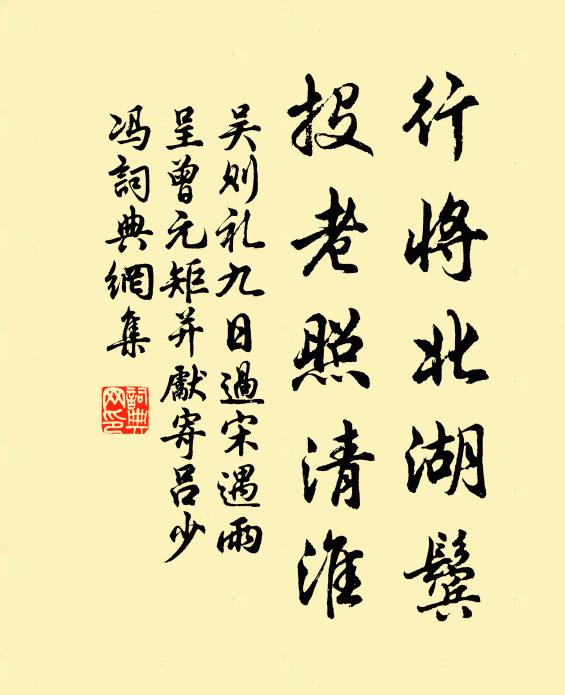 行将北湖鬓
投老照清淮
吴则礼九日過宋遇雨
呈曾元矩并獻寄吕少
冯詞典網集
詞典网印